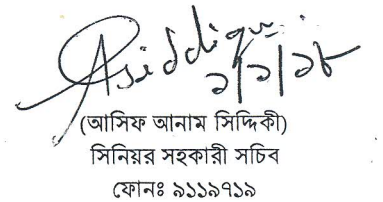 Asiddiqui
১/১/১৮
(আসিফ আনাম সিদ্দিকী)
সিনিয়র সহকারী সচিব
ফোনঃ ৯১১৯৭১৯